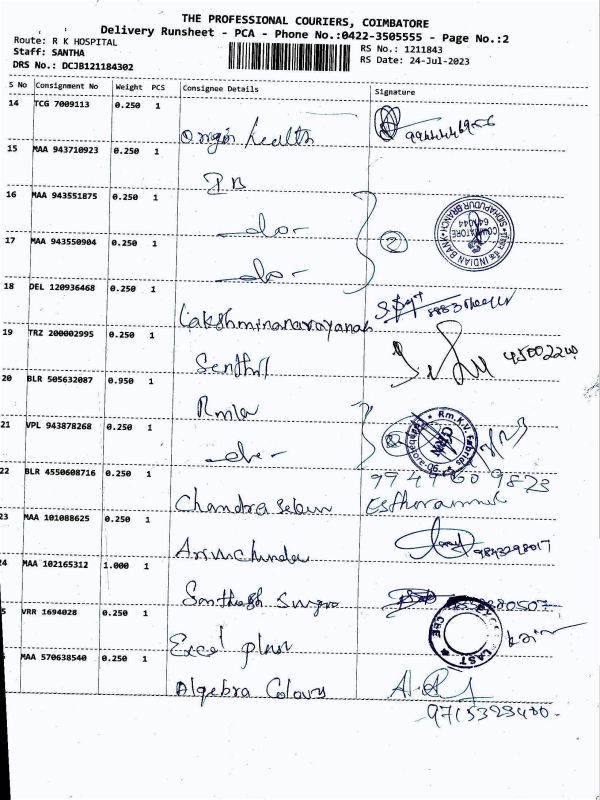 THE PROFESSIONAL COURIERS, COIMBATORE
Delivery Runsheet - PCA - Phone No.:0422-3505555 - Page No.:2
Route: R K HOSPITAL
Staff: SANTHA
DRS No.: DCJB121184302
RS No.: 1211843
RS Date: 24-Jul-2023
S No Consignment No Weight PCS Consignee Details Signature
14 TCG 7009113 0.250 1
Origin health
15 MAA 943710923 0.250 1
IB
16 MAA 943551875 0.250 1
-do-
17 MAA 943550904 0.250 1
-do-
2
INDIAN BANK
SIDHAPUDUR BRANCH
COIMBATORE
641044
18 DEL 120936468 0.250 1
Lakshminanarayanan
19 TRZ 200002995 0.250 1
Senthil
20 BLR 505632087 0.950 1
Rmla
21 VPL 943878268 0.250 1
-do-
Rm.K.V.
22 BLR 4550608716 0.250 1
Chandra Sekar
23 MAA 101088625 0.250 1
9843298017
24 MAA 102165312 1.000 1
Santhosh
5 VRR 1694028 0.250 1
Excel plan
MAA 570638540 0.250 1
Algebra Colours
9715329480